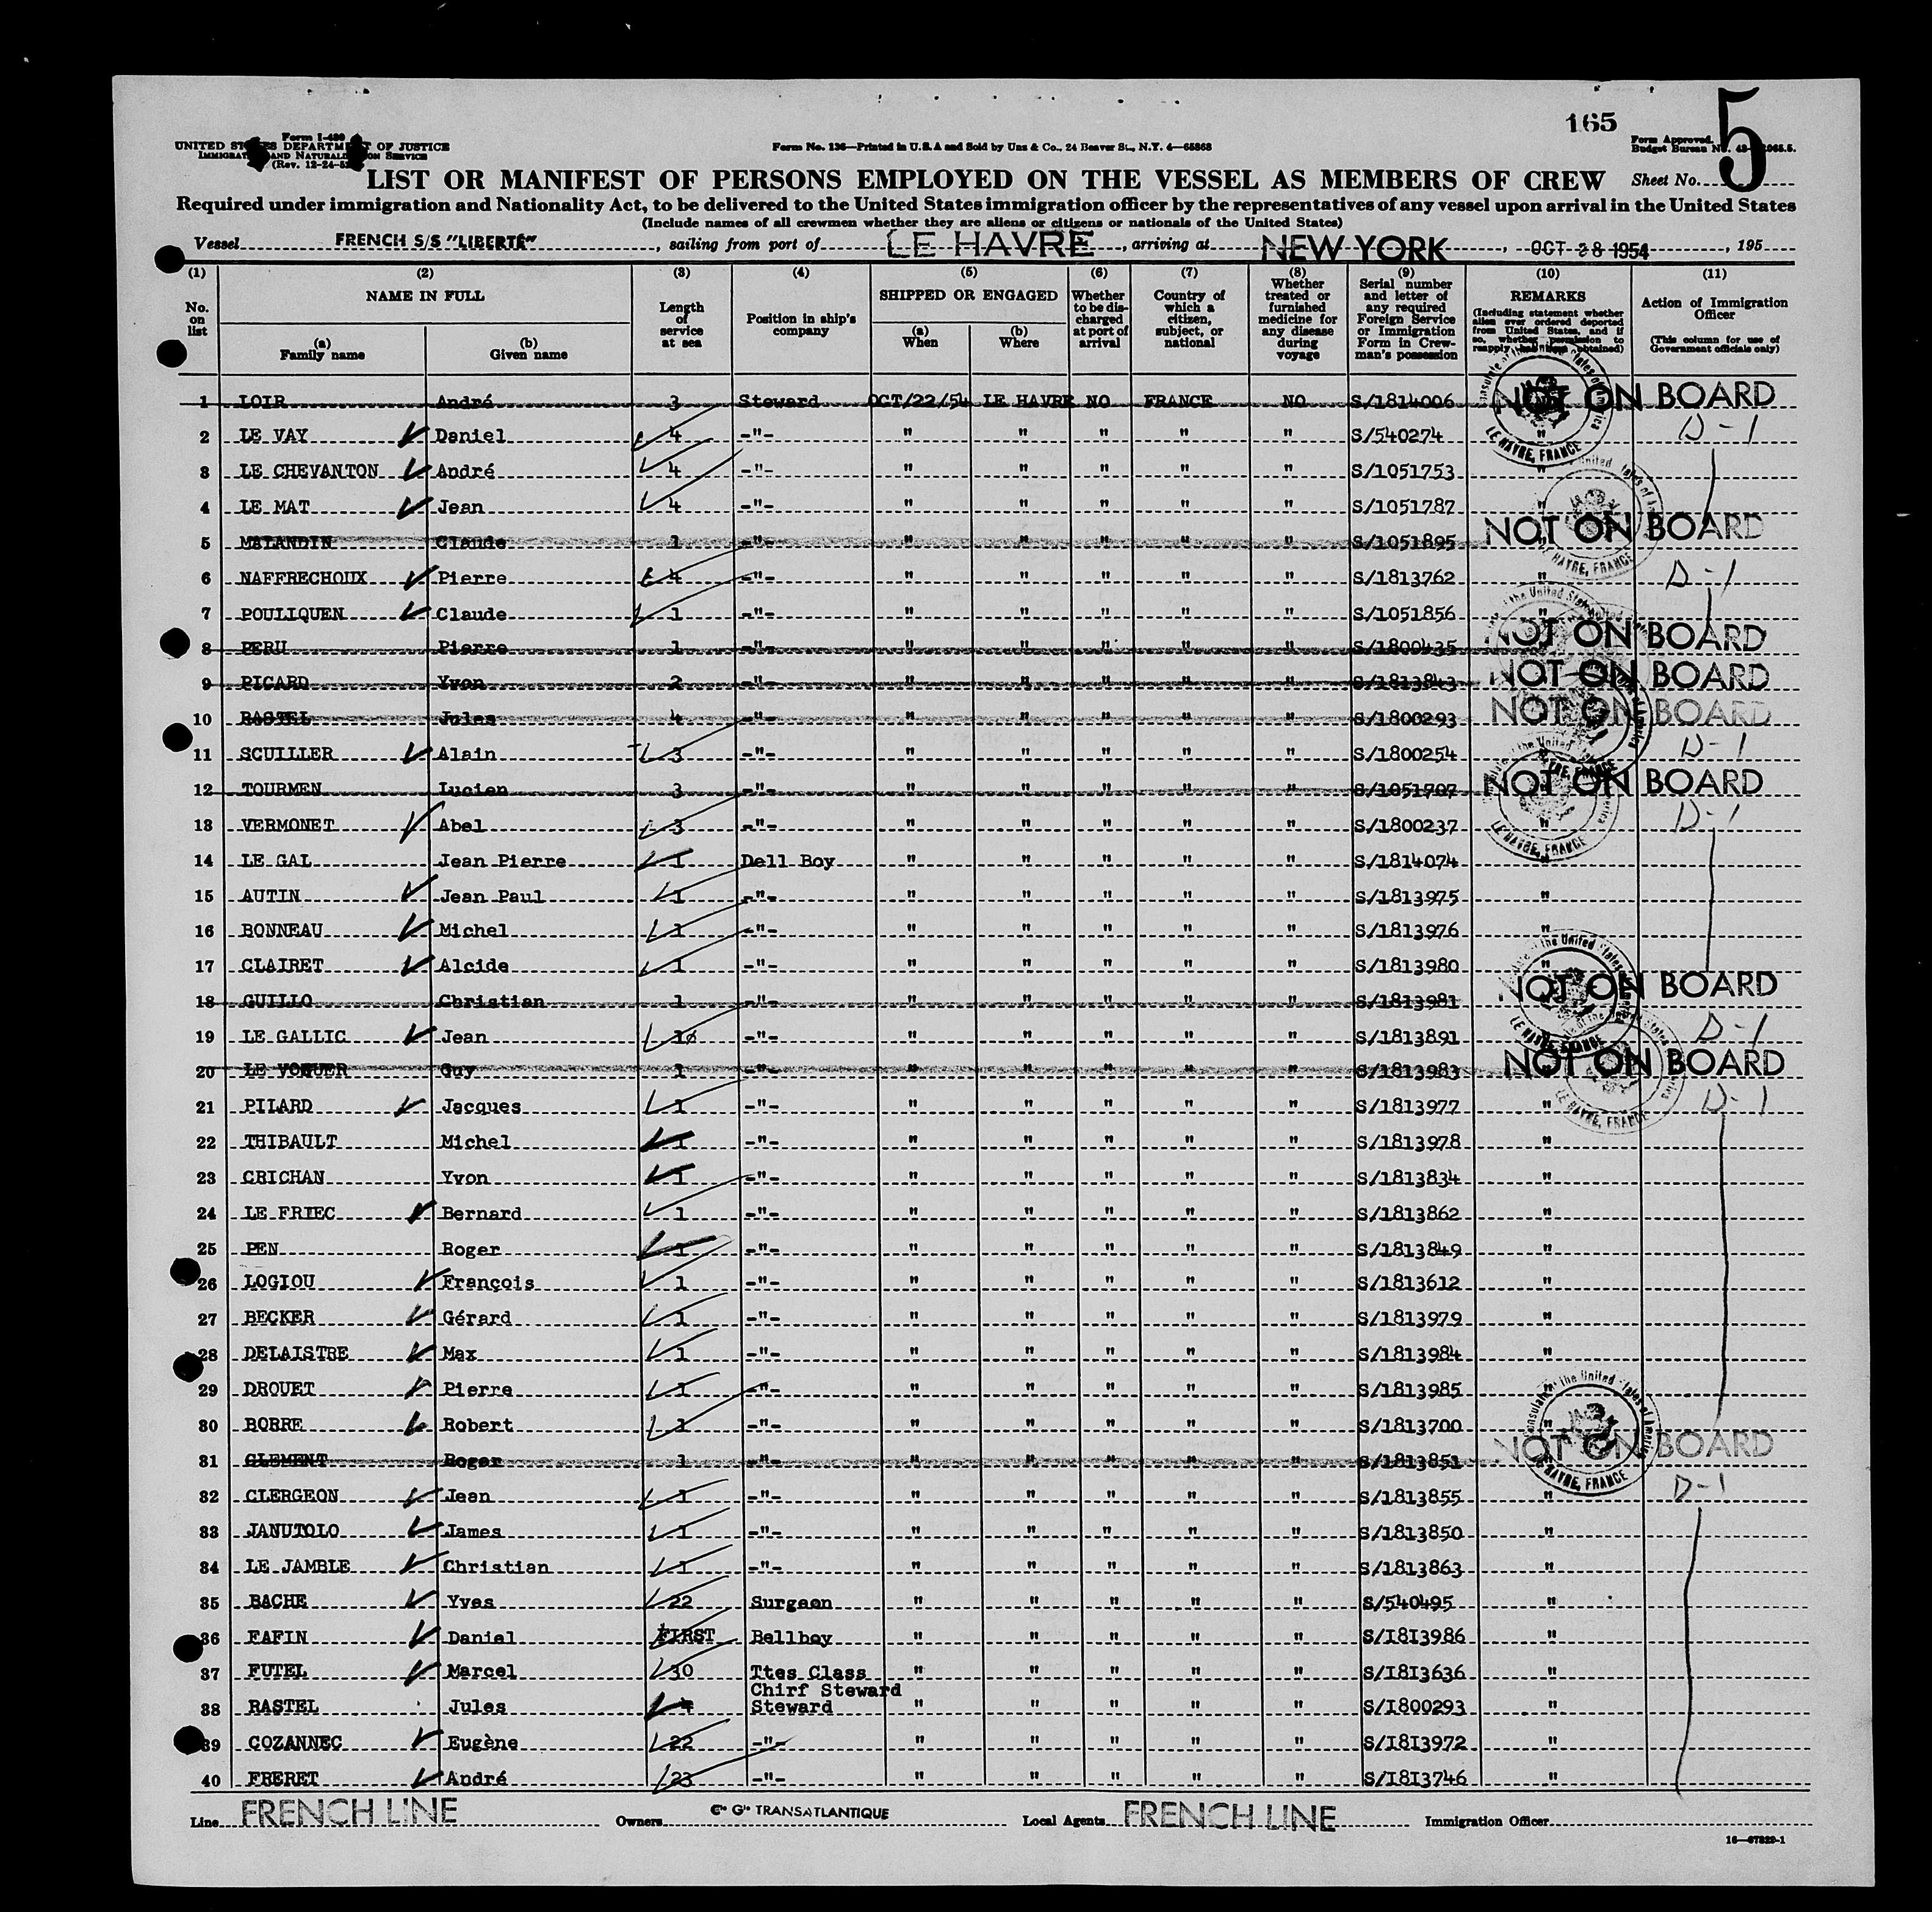 165
Form I-489
UNITED STATES DEPARTMENT OF JUSTICE
IMMIGRATION AND NATURALIZATION SERVICE
(Rev. 12-24-52)
Form No. 136—Printed in U.S.A and Sold by Unz & Co., 24 Beaver St., N.Y. 4—65868
Form Approved.
Budget Bureau No. 43-
LIST OR MANIFEST OF PERSONS EMPLOYED ON THE VESSEL AS MEMBERS OF CREW Sheet No. 5
Required under immigration and Nationality Act, to be delivered to the United States immigration officer by the representatives of any vessel upon arrival in the United States
(Include names of all crewmen whether they are aliens or citizens or nationals of the United States)
Vessel FRENCH S/S "LIBERTÉ", sailing from port of LE HAVRE, arriving at NEW YORK, OCT 28 1954, 195
(1) (2) (3) (4) (5) (6) (7) (8) (9) (10) (11)
No. on list NAME IN FULL (a) Family name (b) Given name Length of service at sea Position in ship's company SHIPPED OR ENGAGED (a) When (b) Where Whether to be discharged at port of arrival Country of which a citizen, subject, or national Whether treated or furnished medicine for any disease during voyage Serial number and letter of any required Foreign Service or Immigration Form in Crewman's possession REMARKS (Including statement whether alien ever ordered deported from United States, and if so, whether permission to reapply has been obtained) Action of Immigration Officer (This column for use of Government officials only)
1 LOIR André 3 Steward OCT/22/54 LE HAVRE NO FRANCE NO S/1814006 NOT ON BOARD
2 LE VAY Daniel 4 -"- " " " " " S/540274 " D-1
3 LE CHEVANTON André 4 -"- " " " " " S/1051753 "
4 LE MAT Jean 4 -"- " " " " " S/1051787 "
5 MALANDIN Claude 1 -"- " " " " " S/1051895 NOT ON BOARD
6 NAFFRECHOUX Pierre 4 -"- " " " " " S/1813762 " D-1
7 POULIQUEN Claude 1 -"- " " " " " S/1051856 "
8 PERU Pierre 1 -"- " " " " " S/1800435 NOT ON BOARD
9 PICARD Yvon 2 -"- " " " " " S/1813843 NOT ON BOARD
10 RASTEL Jules 4 -"- " " " " " S/1800293 NOT ON BOARD
11 SCUILLER Alain 3 -"- " " " " " S/1800254 D-1
12 TOURMEN Lucien 3 -"- " " " " " S/1051707 NOT ON BOARD
13 VERMONET Abel 3 -"- " " " " " S/1800237 " D-1
14 LE GAL Jean Pierre 1 Dell Boy " " " " " S/1814074 "
15 AUTIN Jean Paul 1 -"- " " " " " S/1813975 "
16 BONNEAU Michel 1 -"- " " " " " S/1813976 "
17 CLAIRET Alcide 1 -"- " " " " " S/1813980 "
18 GUILLO Christian 1 -"- " " " " " S/1813981 NOT ON BOARD
19 LE GALLIC Jean 1 -"- " " " " " S/1813891 " D-1
20 LE VOGUER Guy 1 -"- " " " " " S/1813983 NOT ON BOARD
21 PILARD Jacques 1 -"- " " " " " S/1813977 " D-1
22 THIBAULT Michel 1 -"- " " " " " S/1813978 "
23 CRICHAN Yvon 1 -"- " " " " " S/1813834 "
24 LE FRIEC Bernard 1 -"- " " " " " S/1813862 "
25 PEN Roger 1 -"- " " " " " S/1813849 "
26 LOGIOU François 1 -"- " " " " " S/1813612 "
27 BECKER Gérard 1 -"- " " " " " S/1813979 "
28 DELAISTRE Max 1 -"- " " " " " S/1813984 "
29 DROUET Pierre 1 -"- " " " " " S/1813985 "
30 BORRE Robert 1 -"- " " " " " S/1813700 "
31 CLEMENT Roger 1 -"- " " " " " S/1813851 NOT ON BOARD
32 CLERGEON Jean 1 -"- " " " " " S/1813855 " D-1
33 JANUTOLO James 1 -"- " " " " " S/1813850 "
34 LE JAMBLE Christian 1 -"- " " " " " S/1813863 "
35 BACHE Yves 22 Surgeon " " " " " S/540495 "
36 FAFIN Daniel FIRST Bellboy " " " " " S/I8I3986 "
37 FUTEL Marcel 30 Ttes Class Chirf Steward " " " " " S/I8I3636 "
38 RASTEL Jules 4 Steward " " " " " S/I800293 "
39 COZANNEC Eugène 22 -"- " " " " " S/I8I3972 "
40 FRERET André 23 -"- " " " " " S/I8I3746 "
Line FRENCH LINE Owners Cie Gle TRANSATLANTIQUE Local Agents FRENCH LINE Immigration Officer
16—67329-1